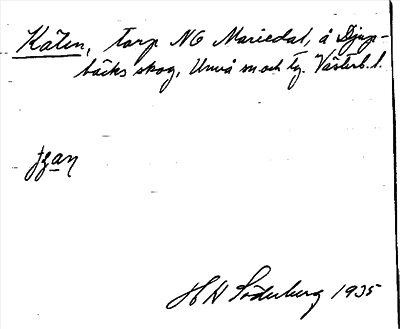 Kåten, torp NO Mariedal, å Djup-
bäcks skog, Umeå sn och tg. Västerb. l.
H N Söderberg 1935